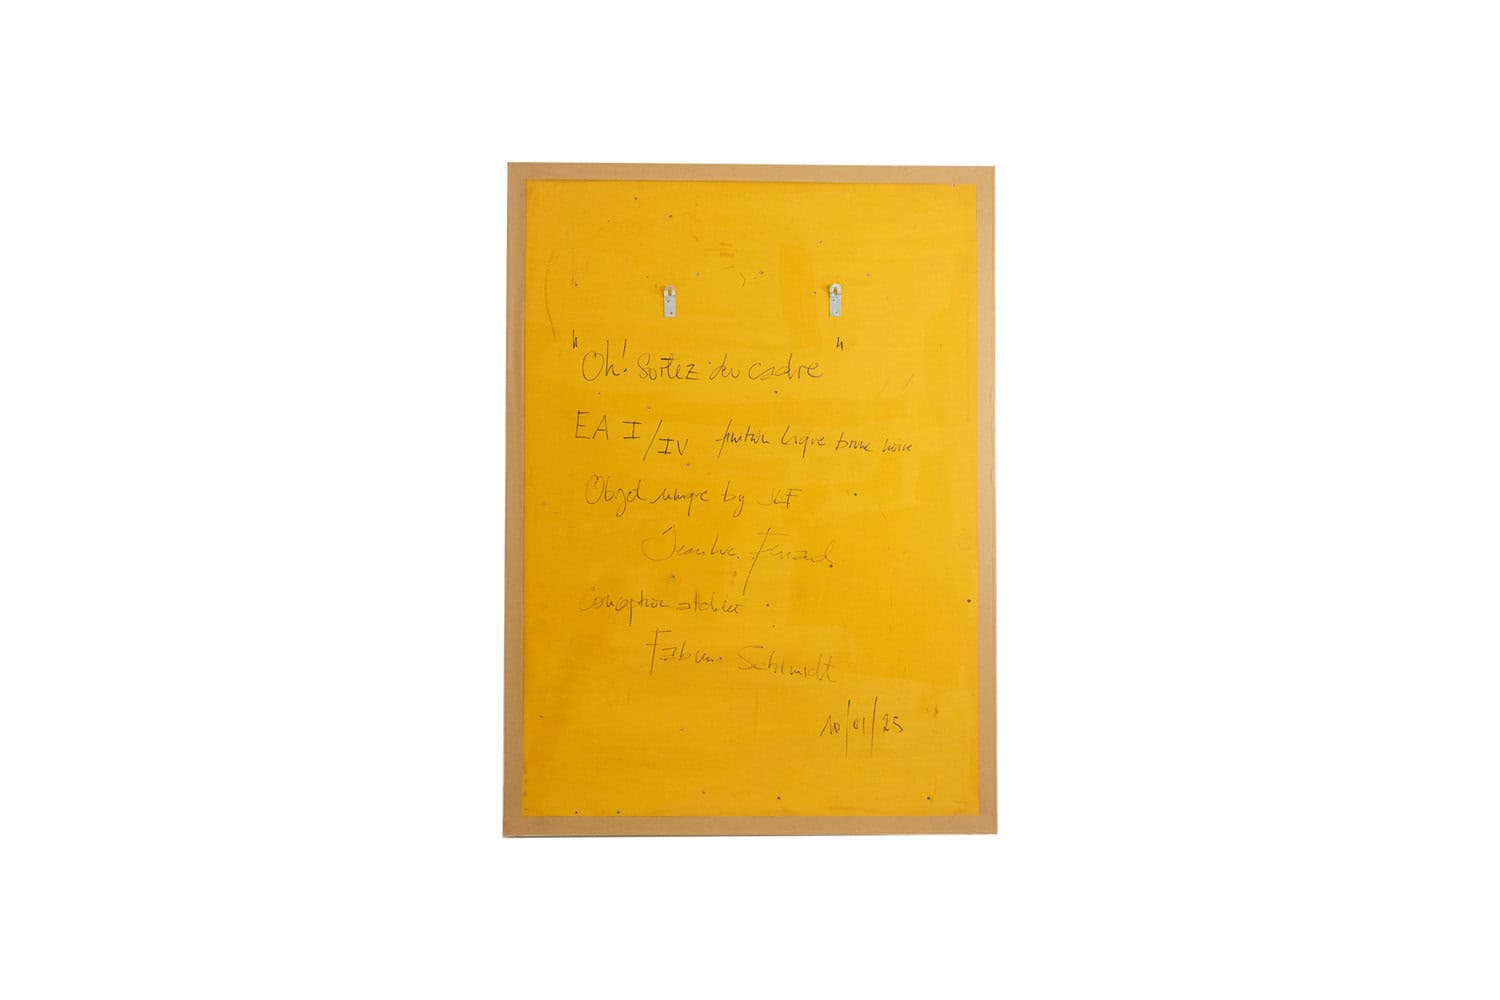 "Oh! Sortez du cadre"
EA I/IV finition laque brune noire
Objet unique by JLF
Jean Luc Ferrand
Conception atelier
Fabien Schimidt
10/01/25